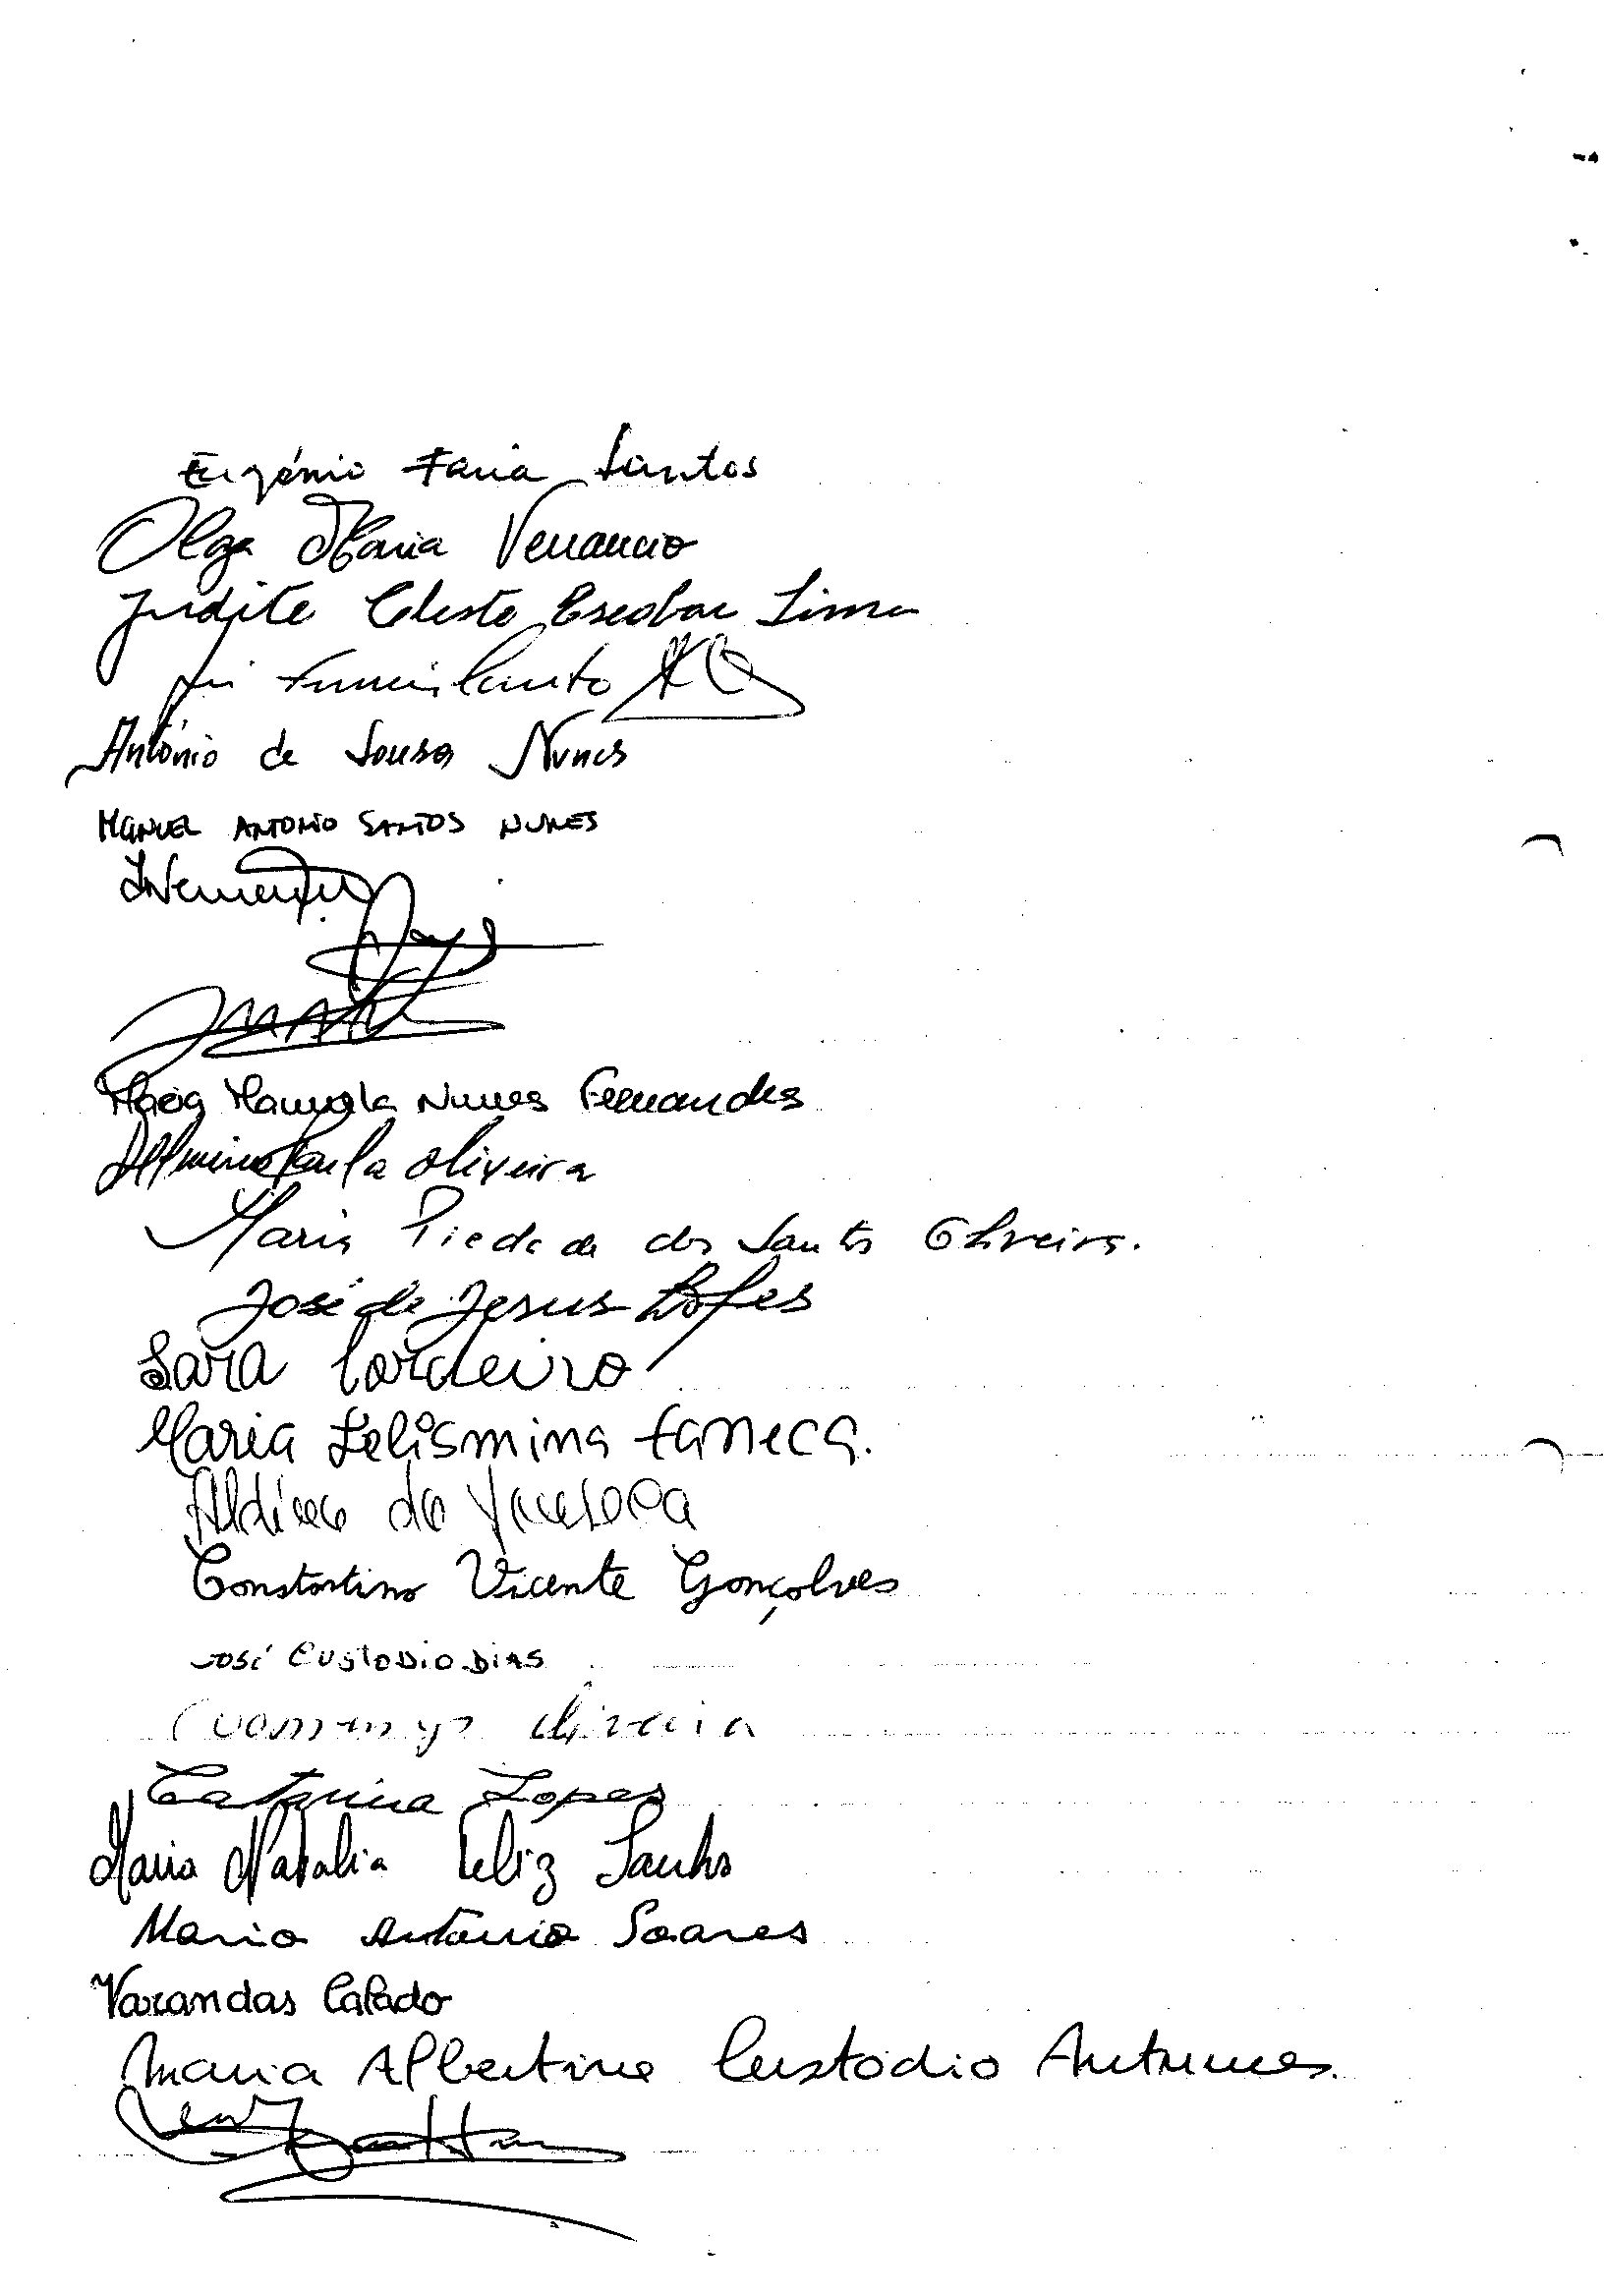 Eugénio Faria Santos
Olga Maria Venancio
Judite Celeste Escobar Lima
António de Sousa Nunes
MANUEL ANTONIO SANTOS NUNES
Maria Manuela Nunes Fernandes
Paula Oliveira
Maria Piedade dos Santos Oliveira.
José de Jesus Lopes
Sara Cordeiro
Maria Felismina Faneca.
Constantino Vicente Gonçalves
José CUSTODIO DIAS
Oliveira
Catarina Lopes
Maria Natalia Feliz Santos
Maria Antonia Soares
Varandas Calado
Maria Albertina Custódio Antunes.